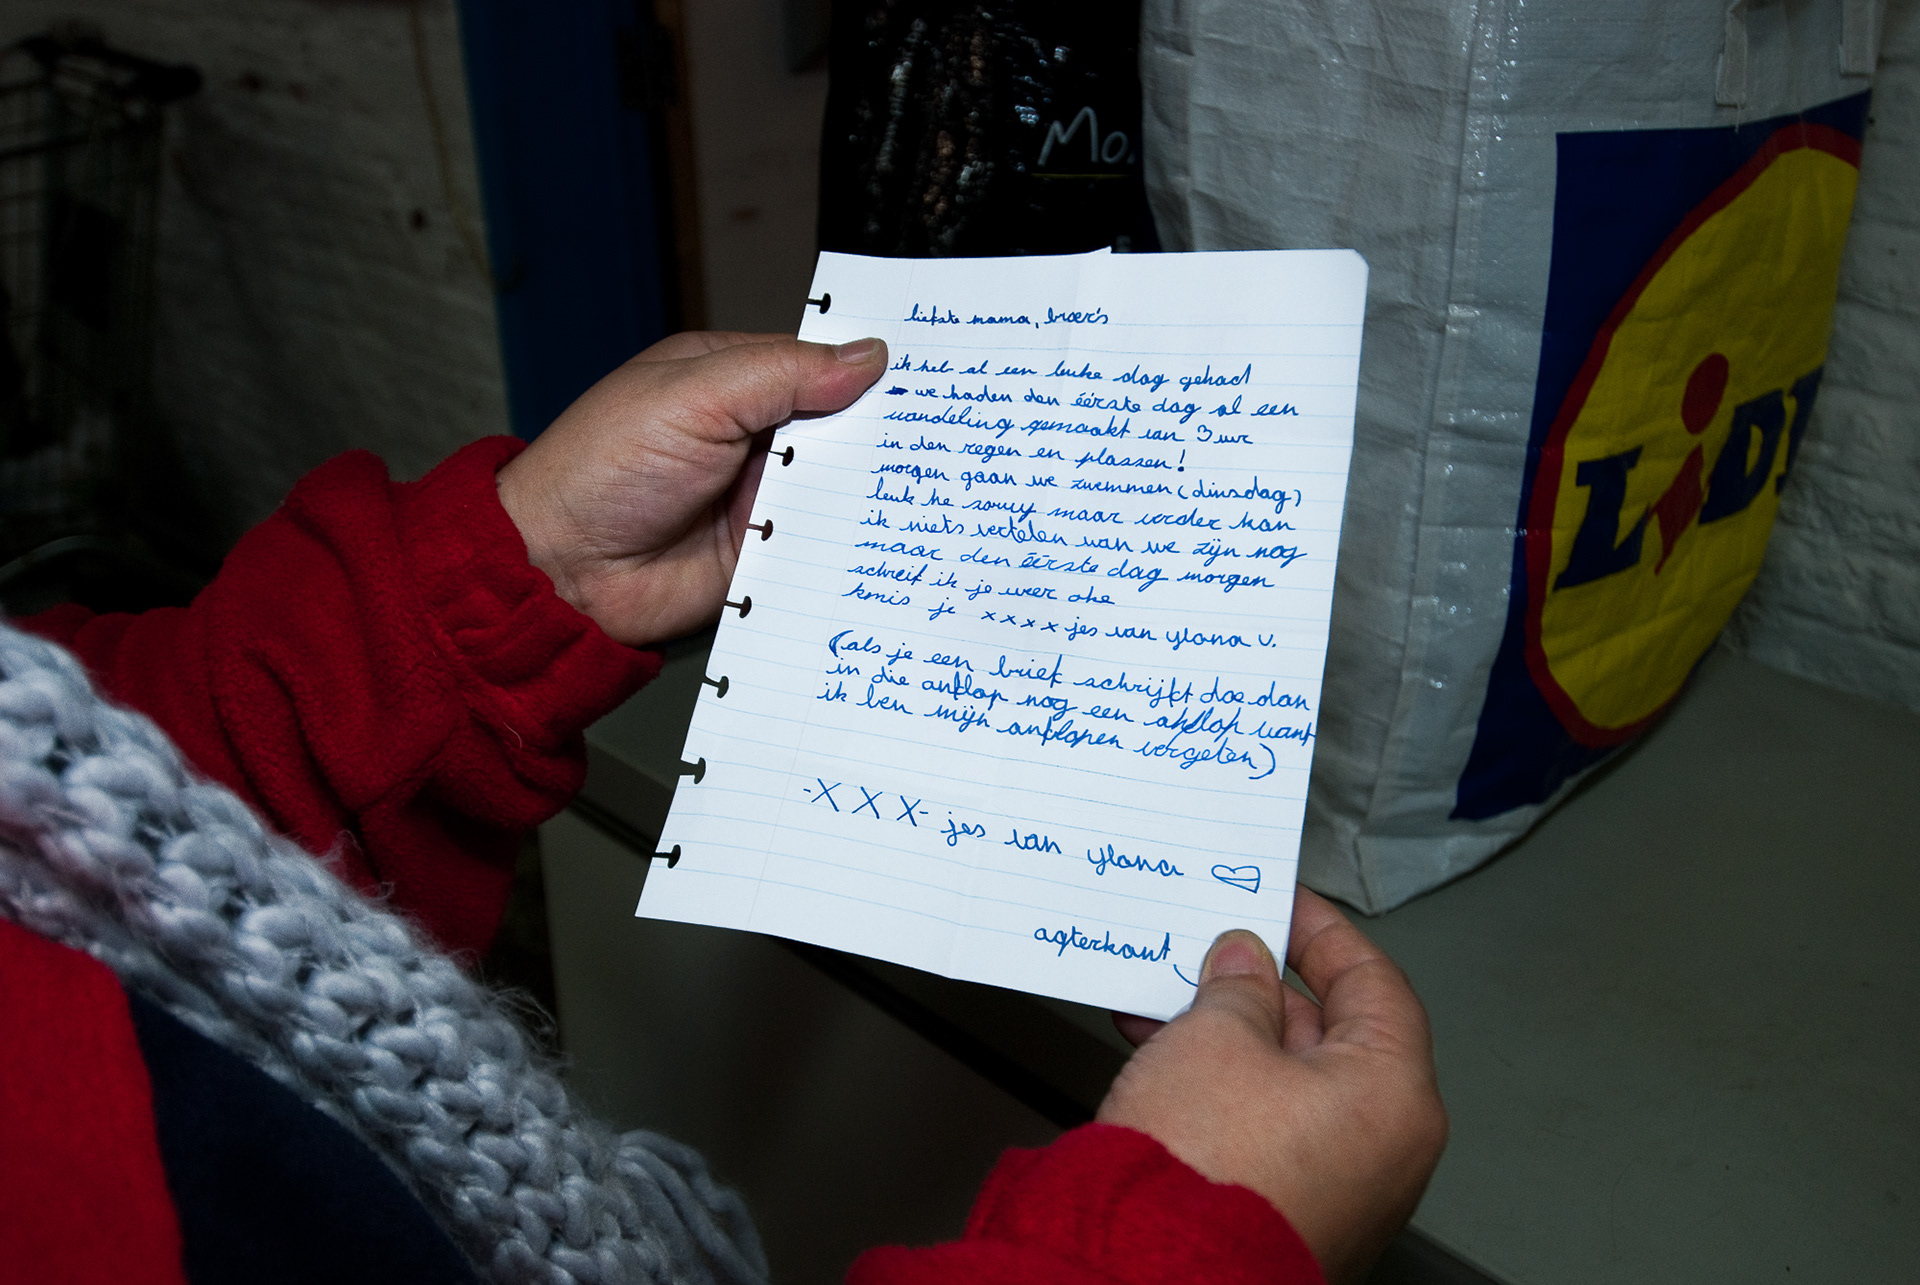 Mo.
LiDL
liefste mama, broer's
ik heb al een leuke dag gehad
we haden den éérste dag al een
wandeling gemaakt van 3 uur
in den regen en plassen!
morgen gaan we zwemmen (dinsdag)
leuk he sorry maar verder kan
ik niets vertelen van we zijn nog
maar den éérste dag morgen
schreif ik je weer oke
kmis je xxxx jes van ylana v.
(als je een brief schrijft doe dan
in die anflop nog een anflop want
ik ben mijn anflopen vergeten)
-X X X- jes van ylana
aqterkant